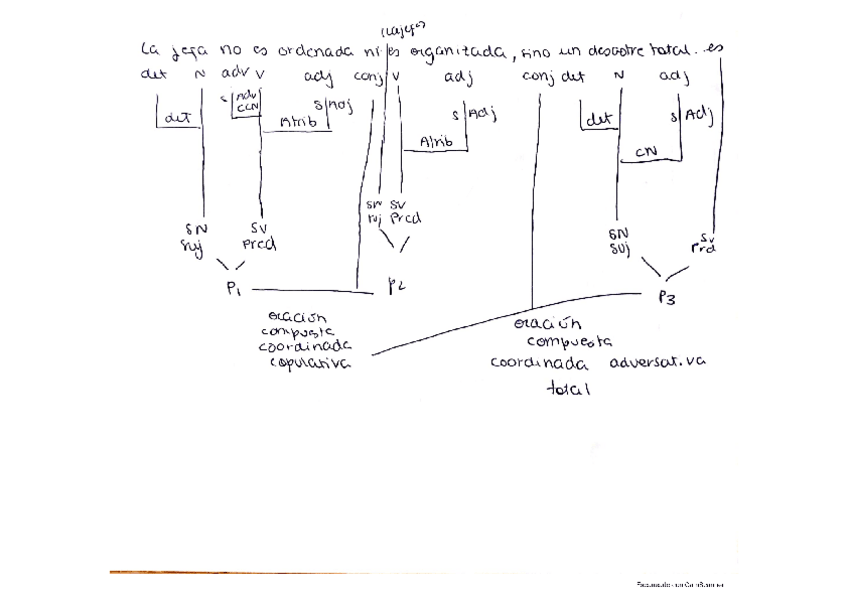 (la jefa)
La jefa no es ordenada ni es organizada, sino un desastre total. es
det N adv V adj conj V adj conj det N adj
det S Adv CCN Atrib S Adj Atrib S Adj det CN S Adj
SN Suj SV Pred SN Suj SV Pred SN Suj SV Prd
P1 P2 P3
oración compuesta coordinada copulativa
oración compuesta coordinada adversativa total
Escaneado con CamScanner